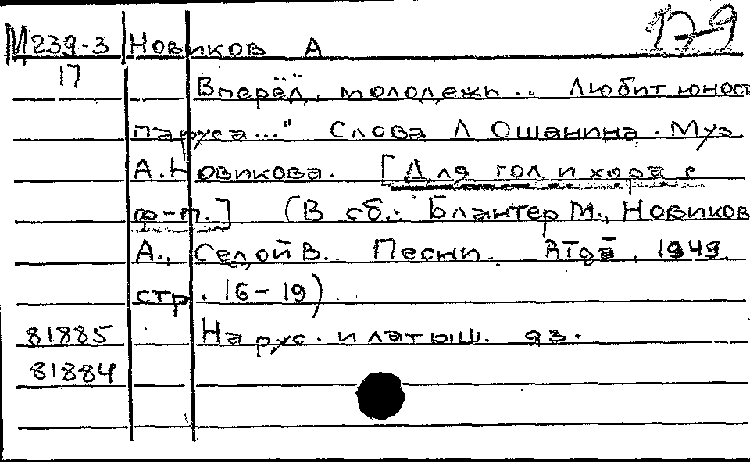 М239-3 Новиков А 17-9
17 Вперёд, молодежь.. Любит юност
паруса..." Слова Л Ошанина. Муз
А. Новикова. [Для гол и хора с
ф-п.] (В сб.: Блантер М., Новиков
А., Седой В. Песни. Rīgā, 1949
стр. 16-19)
81885 На рус. и латыш. яз.
81884